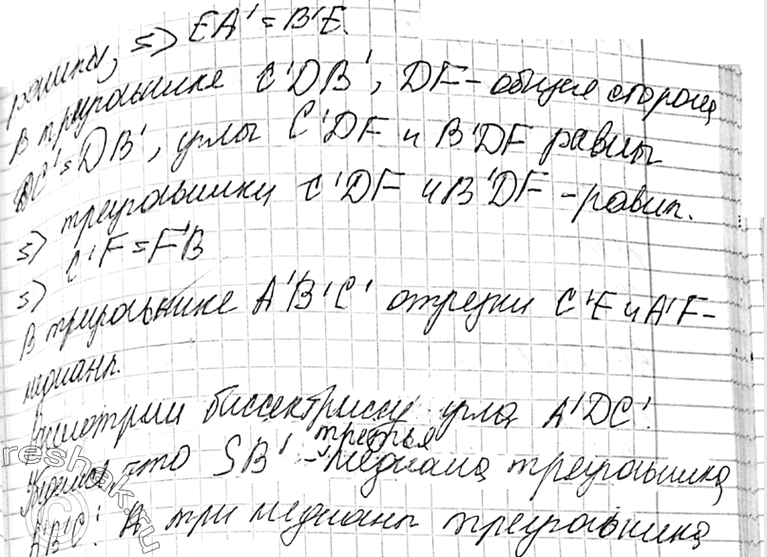 равны, => EA' = B'E.
В треугольнике C'DB', DF - общая сторона
DC' = DB', углы C'DF и B'DF равны
=> треугольники C'DF и B'DF - равн.
=> C'F = F'B
В треугольнике A'B'C' отрезки C'E и A'F -
медианы.
биссектрису угла A'DC'.
что SB' - третья медиана треугольника
A'B'C'. А три медианы треугольника
reshak.ru